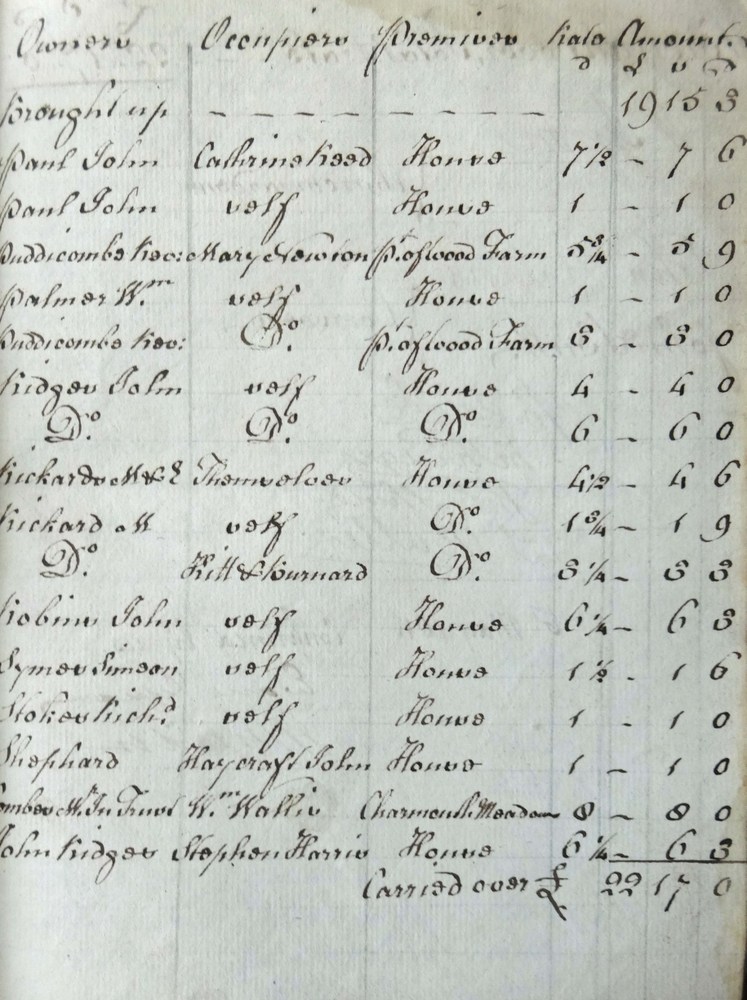 Owners Occupiers Premises Rate Amount
d £ s d
Brought up - - - - - - - - 19 15 3
Paul John Cathrine Reed House 7½ - 7 6
Paul John self House 1 - 1 0
Puddicombe Rev: Mary Newton Pt. of Wood Farm 5¾ - 5 9
Palmer Wm self House 1 - 1 0
Puddicombe Rev: Do. Pt. of Wood Farm 3 - 3 0
Ridges John self House 4 - 4 0
Do. Do. Do. 6 - 6 0
Rickards M & E Themselves House 4½ - 4 6
Rickard M self Do. 1¾ - 1 9
Do. Hitt & Burnard Do. 3¼ - 3 3
Robins John self House 6¼ - 6 3
Symes Simeon self House 1½ - 1 6
Stokes Richd. self House 1 - 1 0
Shephard Haycraft John House 1 - 1 0
ombes Mr. In Trust Wm Wallis Charmouth Meadows 8 - 8 0
John Ridges Stephen Harris House 6¼ - 6 3
Carried over £ 22 17 0